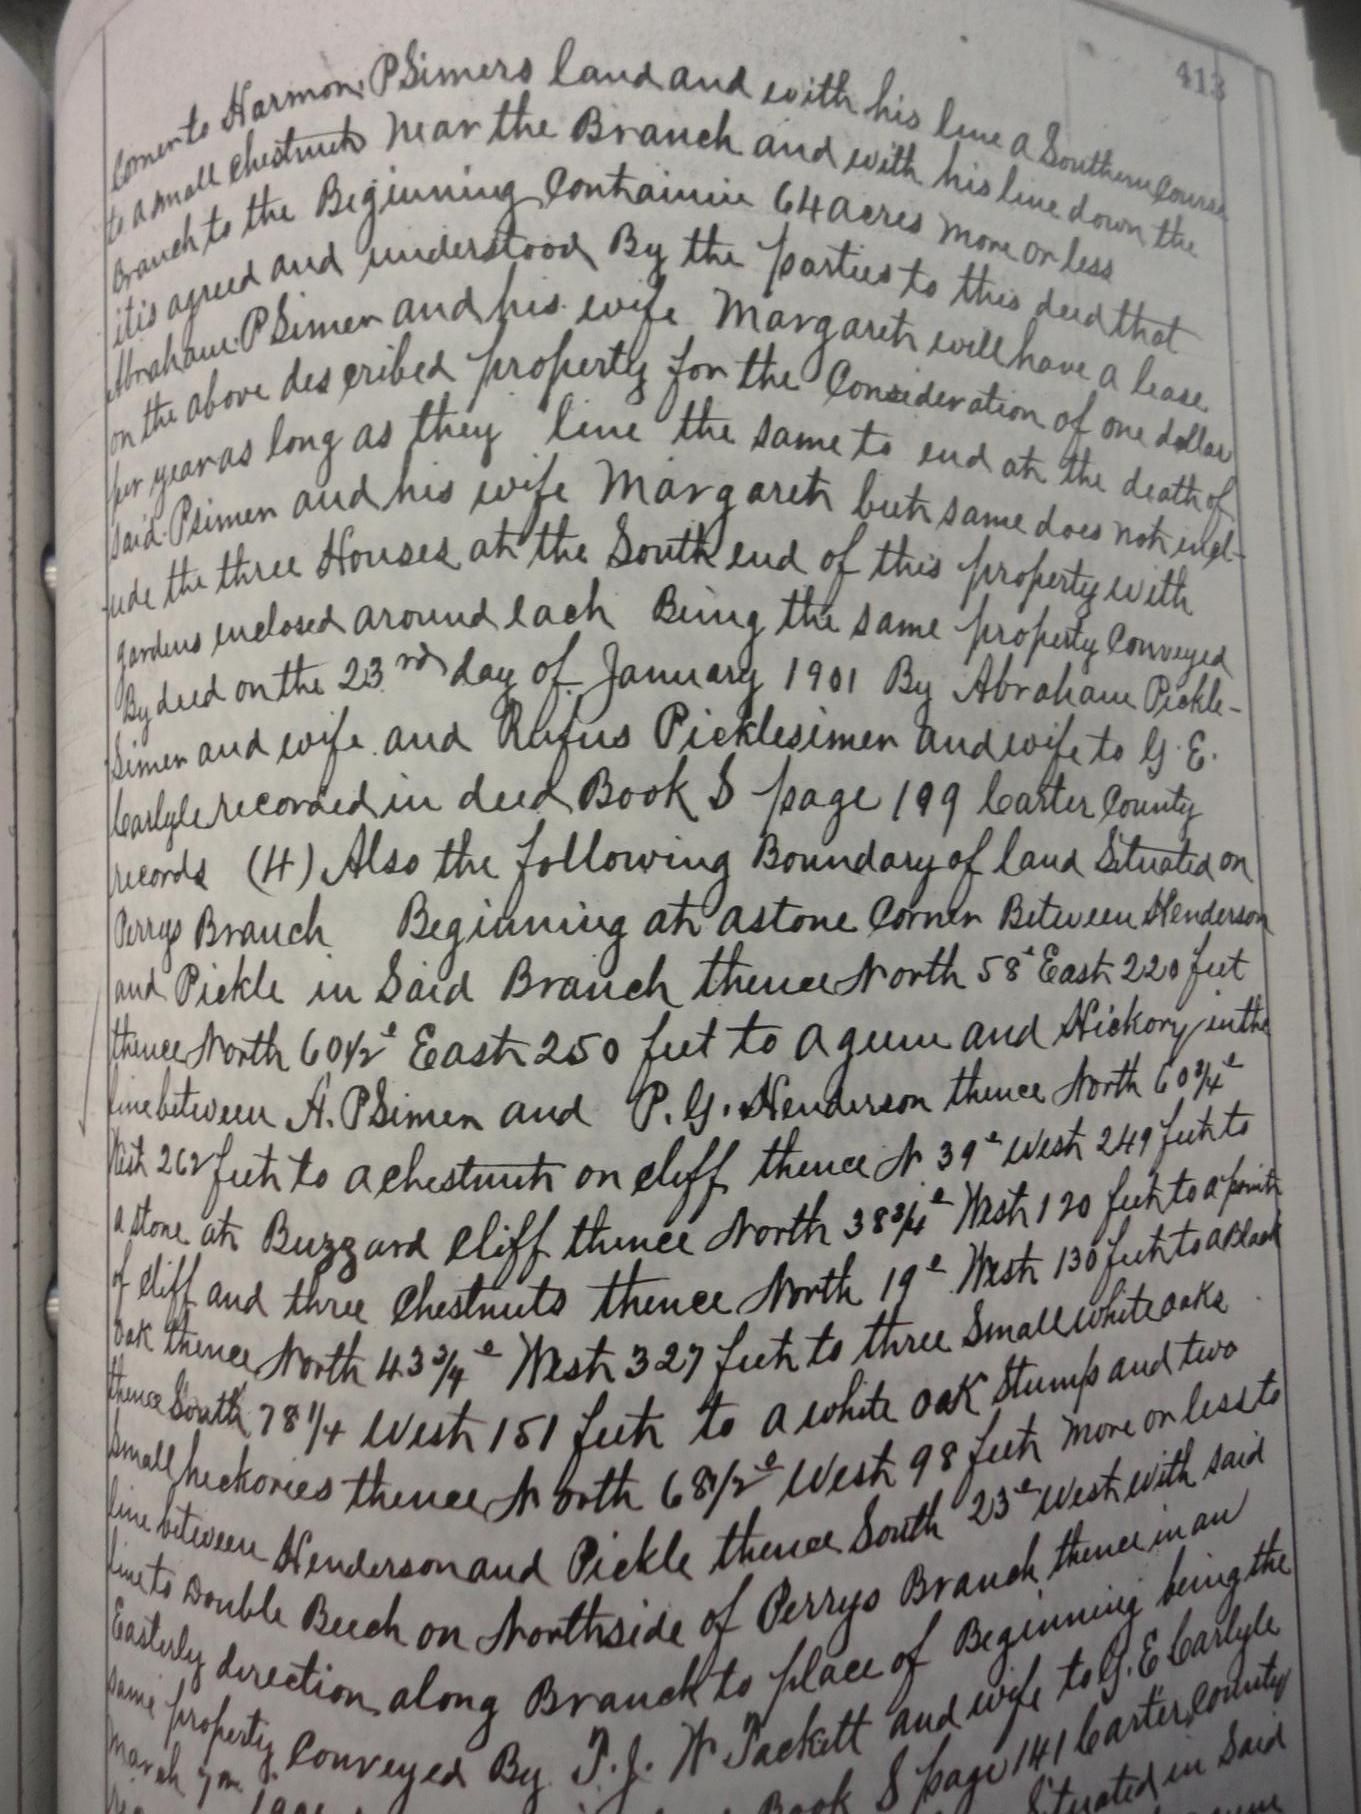 413
Corner to Harmon PSimers land and with his line a Southern Course
to a small chestnut near the Branch and with his line down the
Branch to the Beginning Containin 64 acres more or less
it is agreed and understood By the parties to this deed that
Abraham PSimer and his wife Margaret will have a lease
on the above described property for the Consideration of one dollar
per year as long as they live the same to end at the death of
said PSimer and his wife Margaret but same does not incl-
ude the three Houses at the South end of this property with
gardens enclosed around each Being the same property Conveyed
By deed on the 23rd day of January 1901 By Abraham Pickle-
Simer and wife and Rufus Picklesimer and wife to G. E.
Carlyle recorded in deed Book S page 199 Carter County
records (4) Also the following Boundary of land Situated on
Perrys Branch Beginning at a stone Corner Between Henderson
and Pickle in Said Branch thence North 58° East 220 feet
thence North 60 1/2° East 250 feet to a gum and Hickory in the
line between A. PSimer and P. G. Henderson thence North 60 3/4°
West 262 feet to a chestnut on cliff thence N 39° West 249 feet to
a stone at Buzzard Cliff thence North 38 3/4° West 120 feet to a point
of cliff and three Chestnuts thence North 19° West 130 feet to a Black
oak thence North 43 3/4° West 327 feet to three Small white oaks
thence South 78 1/4 West 151 feet to a white oak Stump and two
small heckories thence North 68 1/2° West 98 feet more or less to
line between Henderson and Pickle thence South 23° West with said
line to Double Beech on Northside of Perrys Branch thence in an
Easterly direction along Branch to place of Beginning being the
same property Conveyed By T. J. W Tackett and wife to G. E Carlyle
March 7 Book S page 141 Carter County
Situated in Said